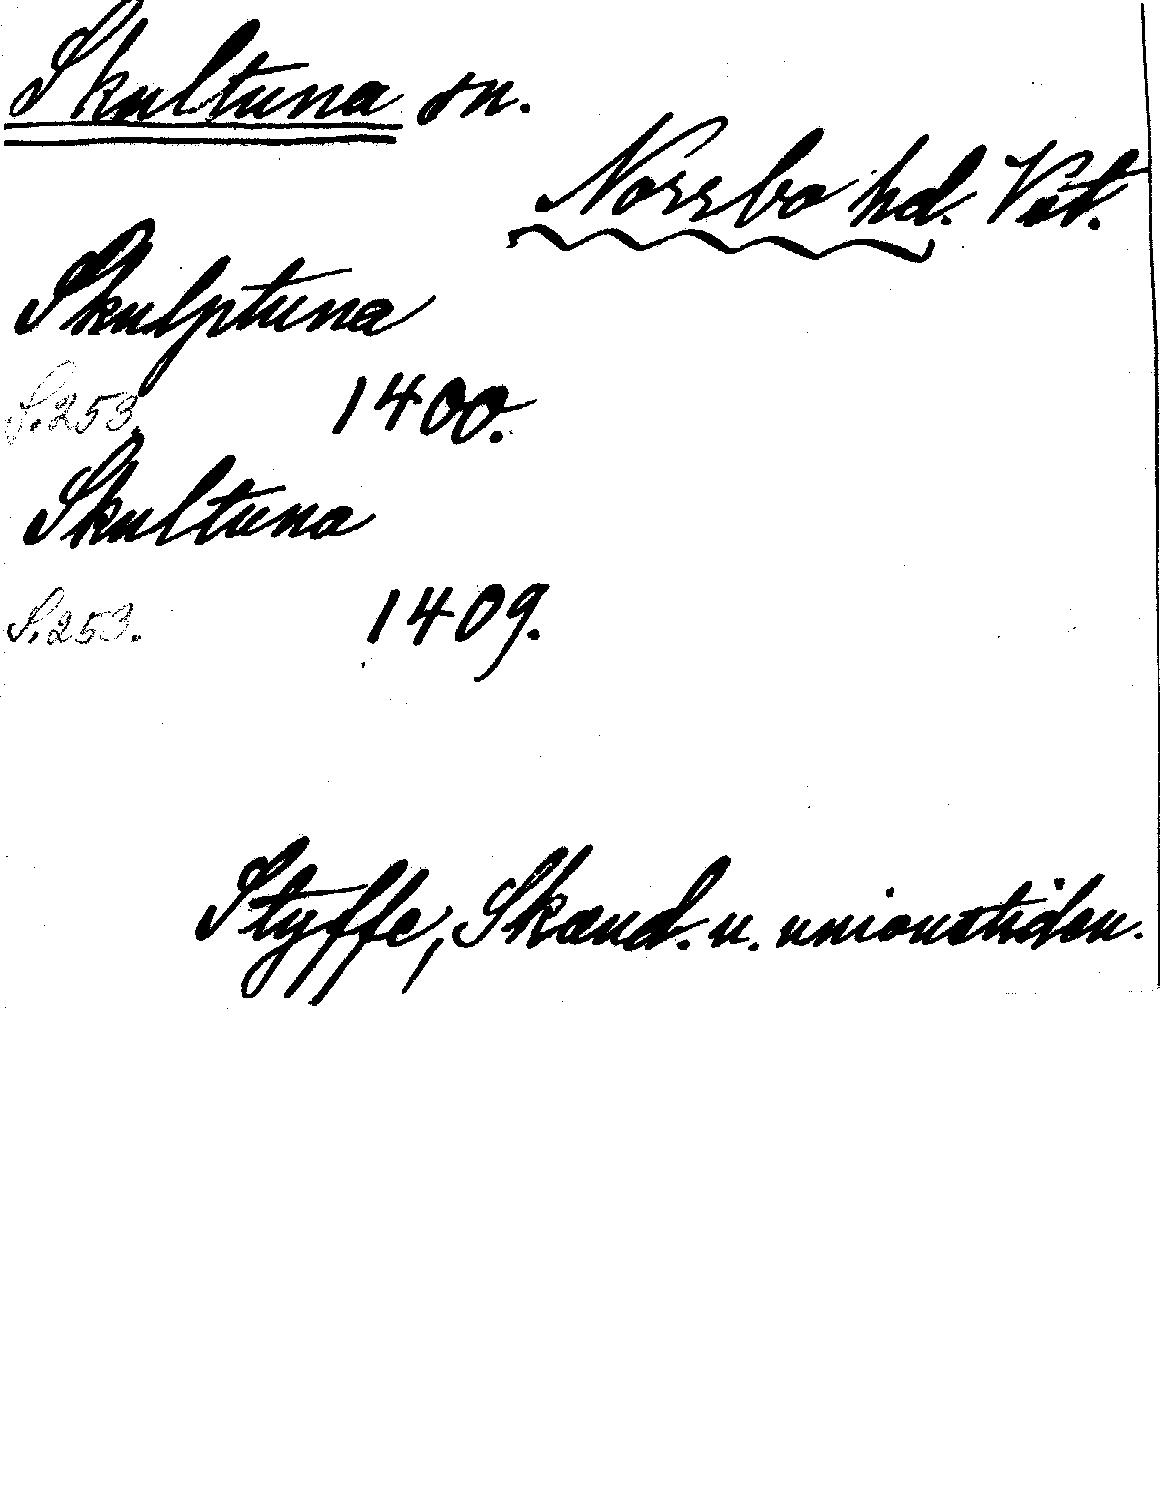 Skultuna sn.
Norrbo hd. Vst.
Skulptuna
S. 253. 1400.
Skultuna
S. 253. 1409.
Styffe, Skand. u. unionstiden.